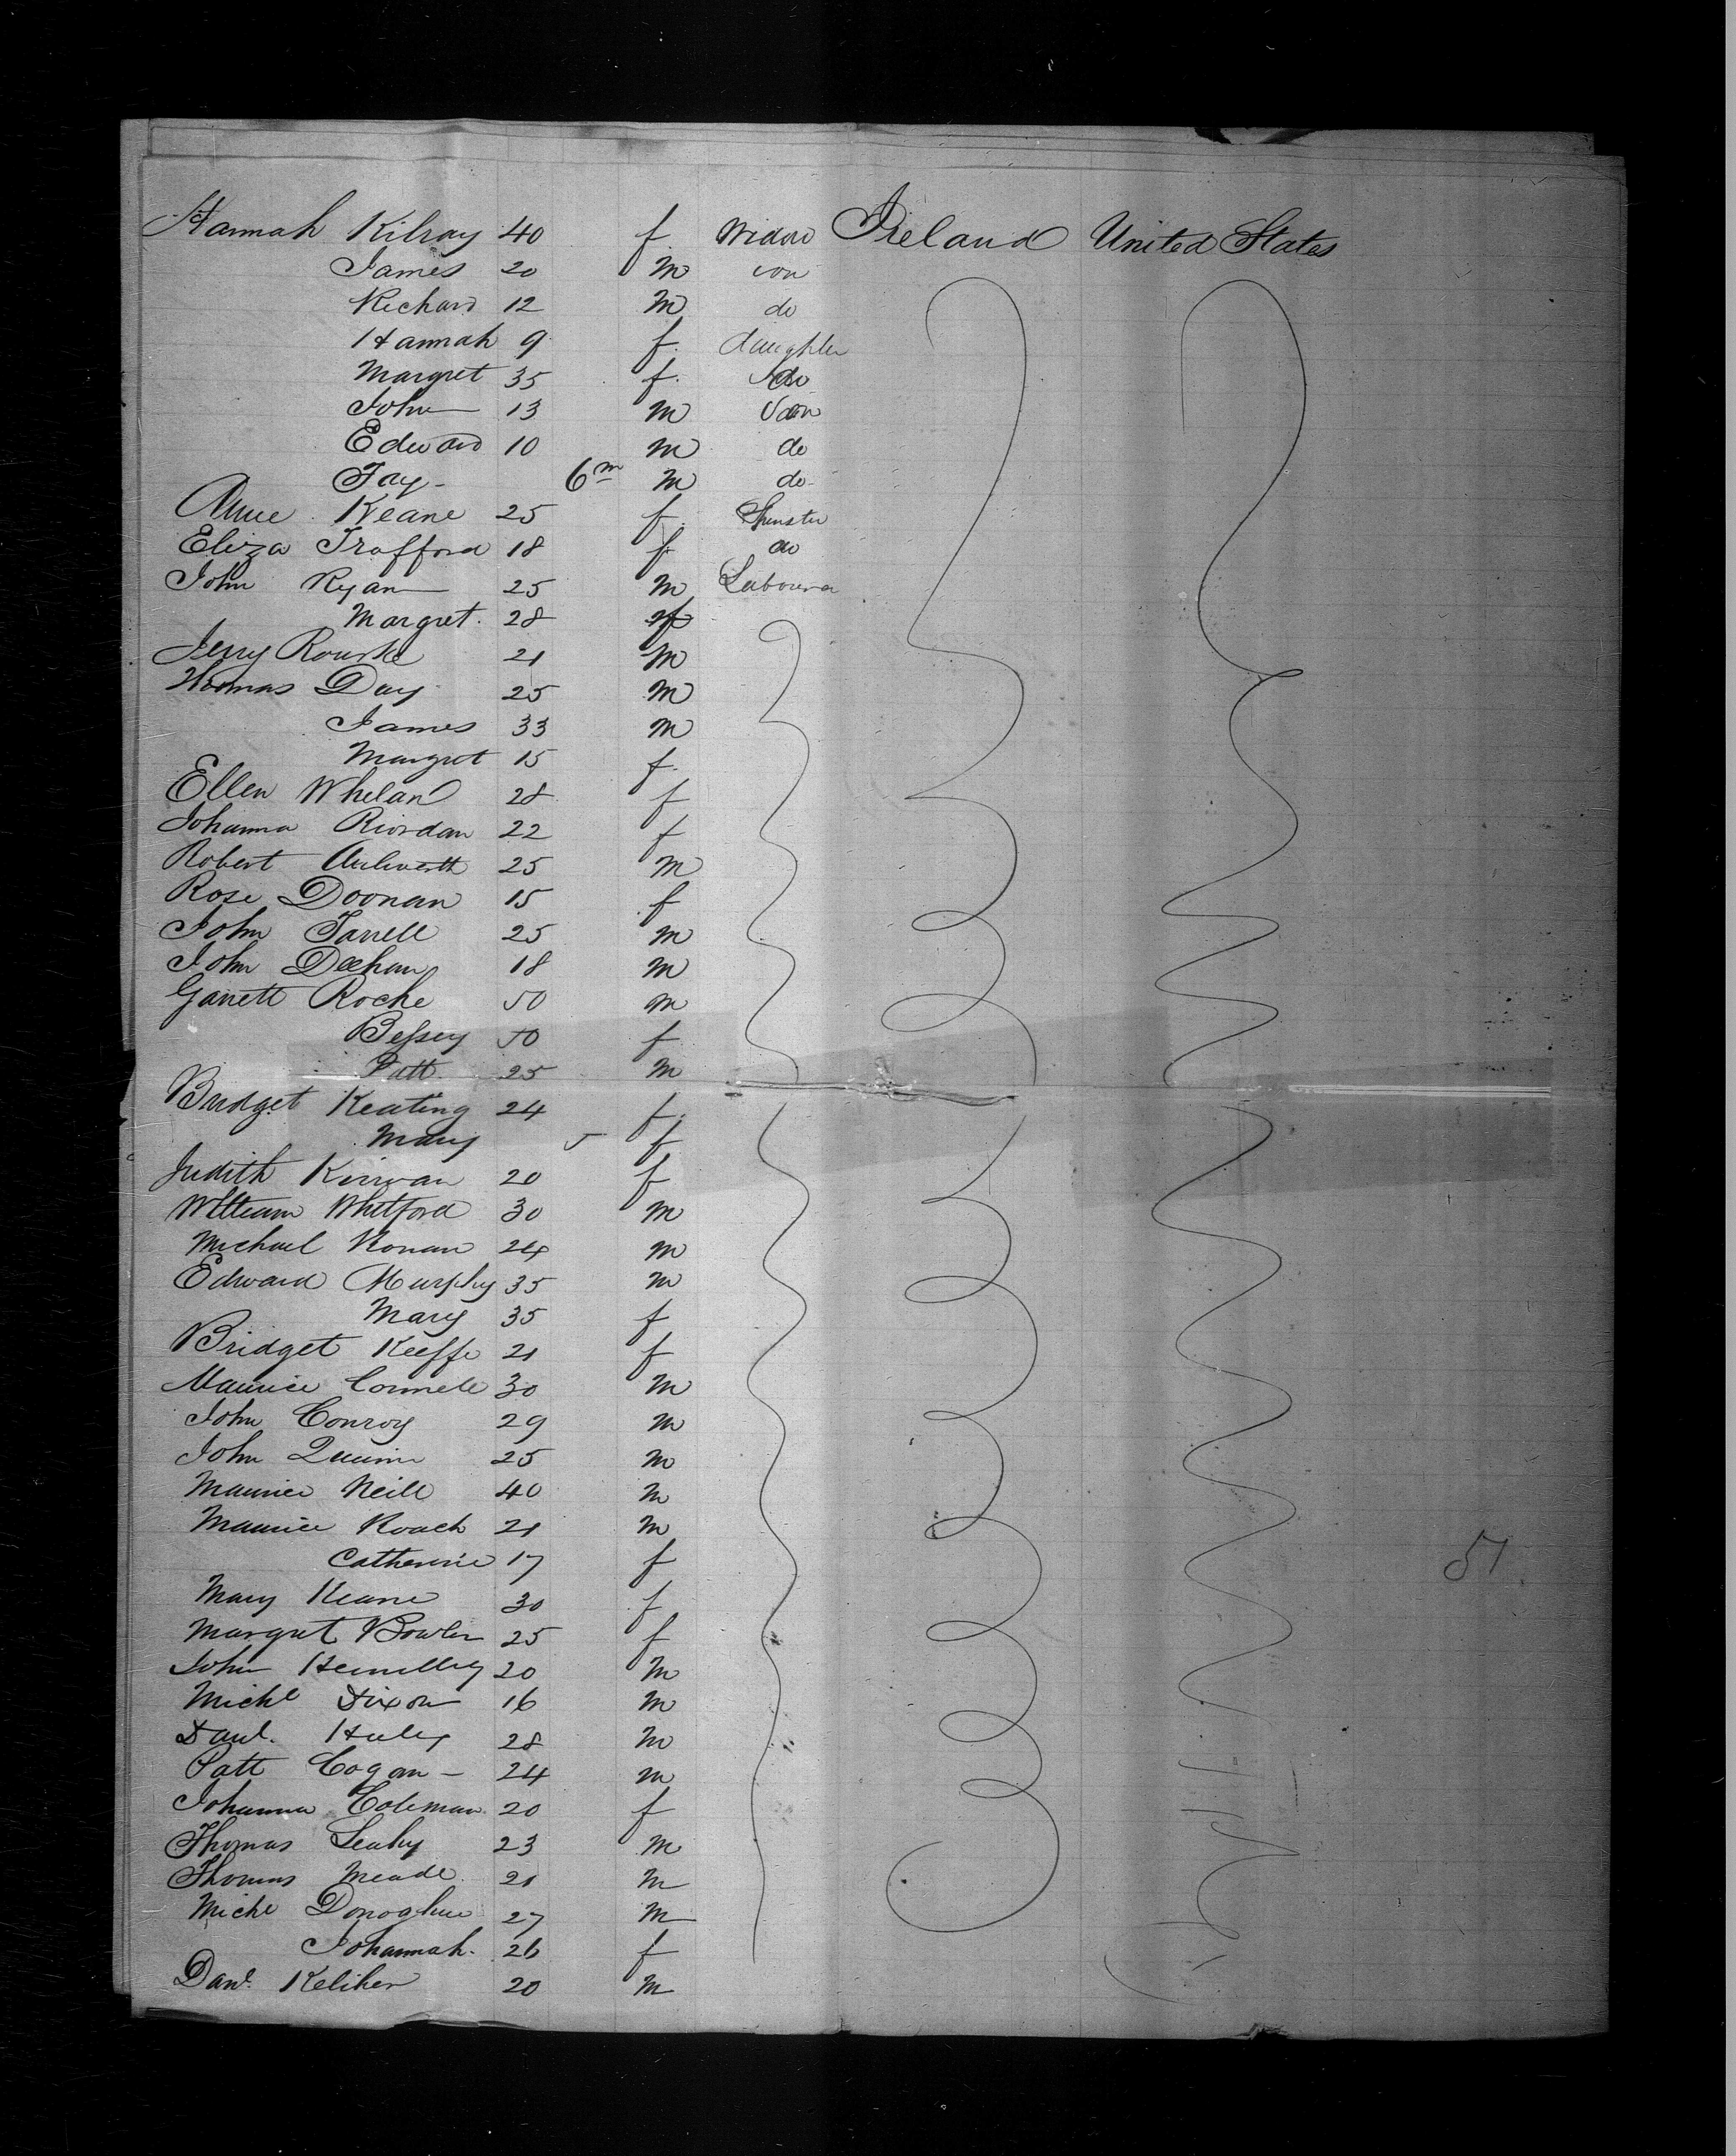 Hannah Kilroy 40 f. Widow Ireland United States
James 20 m son
Richard 12 m do
Hannah 9 f. daughter
Margret 35 f. do
John 13 m Son
Edward 10 m do
6m m do
Anne Keane 25 f. Spinster
Eliza Trafford 18 f. do
John Ryan 25 m Labourer
Margret. 28 f
Jerry Rourke 21 m
Thomas Day 25 m
James 33 m
Margret 15 f.
Ellen Whelan 28 f
Johanna Riordan 22 f
Robert 25 m
Rose Doonan 15 f
John Farrell 25 m
John Deehan 18 m
Garrett Roche 50 m
Bessey 50 f
Patt. 25 m
Bridget Keating 24 f.
Mary 5 f
Judith Kirwan 20 f
William Whitford 30 m
Michael Ronan 24 m
Edward Murphy 35 m
Mary 35 f
Bridget Keeffe 21 f
Maurice Connell 30 m
John Conroy 29 m
John Quinn 25 m
Maurice Neill 40 m
Maurice Roach 21 m
Catherine 17 f
51
Mary Keane 30 f
Margret Bowler 25 f
John 20 m
Michl Dixon 16 m
Danl. Haley 28 m
Patt Cogan - 24 m
Johanna Coleman 20 f
Thomas Leahy 23 m
Thomas Meade 21 m
Michl Donoghue 27 m
Johannah. 26 f
Danl. Keliher 20 m